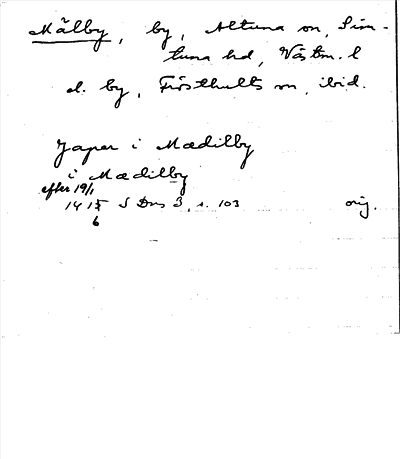 Mälby, by, Altuna sn, Sim-
tuna hd, Västm. l
el. by, Frösthults sn, ibid.
Japer i Mædilby
i Mædilby
efter 19/1
1415 SDns 3, s. 103 orig.
6